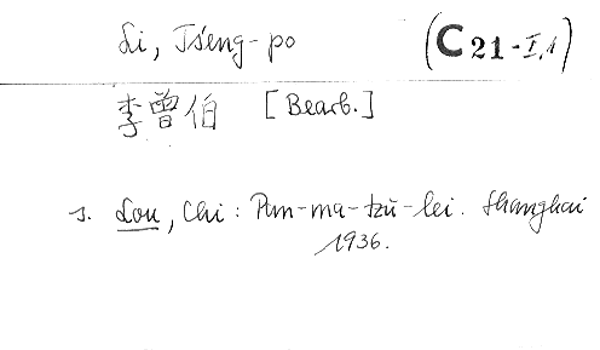 Li, Tseng-po (C 21-I,1)
李曾伯 [Bearb.]
s. Lou, Chi: Pan-ma-tzŭ-lei. Shanghai
1936.